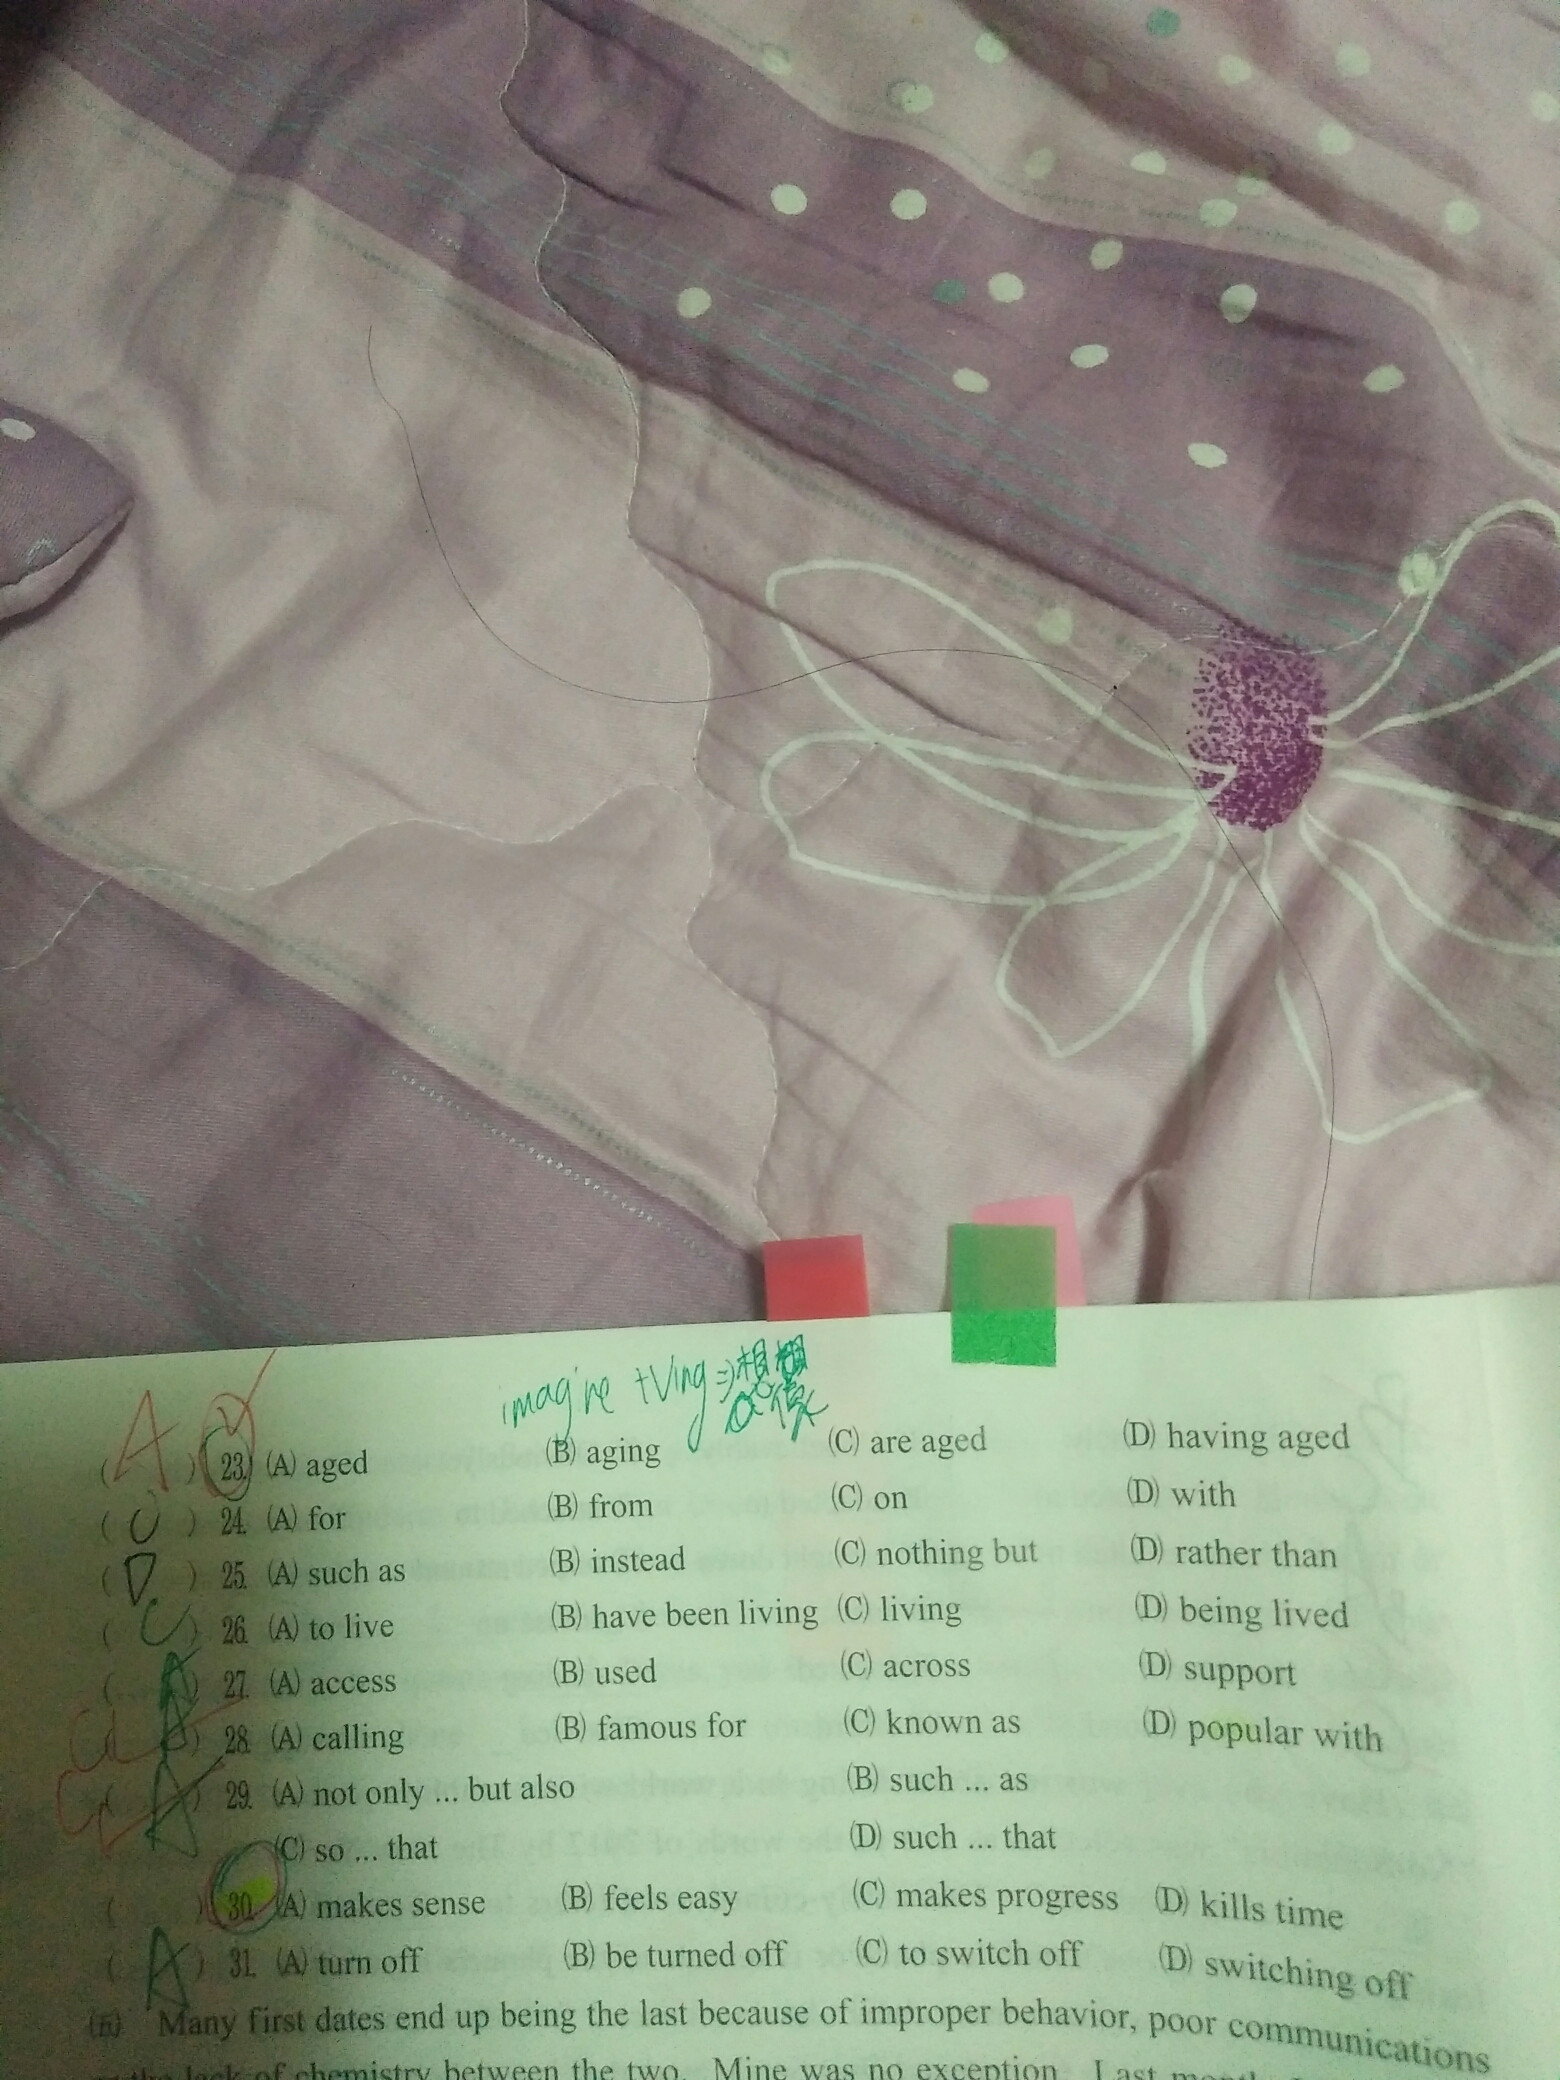 imagine +Ving ⇒ 想想像
( A ) 23. (A) aged (B) aging (C) are aged (D) having aged
( C ) 24. (A) for (B) from (C) on (D) with
( D ) 25. (A) such as (B) instead (C) nothing but (D) rather than
( C ) 26. (A) to live (B) have been living (C) living (D) being lived
( A ) 27. (A) access (B) used (C) across (D) support
( ) 28. (A) calling (B) famous for (C) known as (D) popular with
C ( A ) 29. (A) not only ... but also (B) such ... as
(C) so ... that (D) such ... that
( ) 30. (A) makes sense (B) feels easy (C) makes progress (D) kills time
( A ) 31. (A) turn off (B) be turned off (C) to switch off (D) switching off
(五) Many first dates end up being the last because of improper behavior, poor communications
the lack of chemistry between the two. Mine was no exception. Last